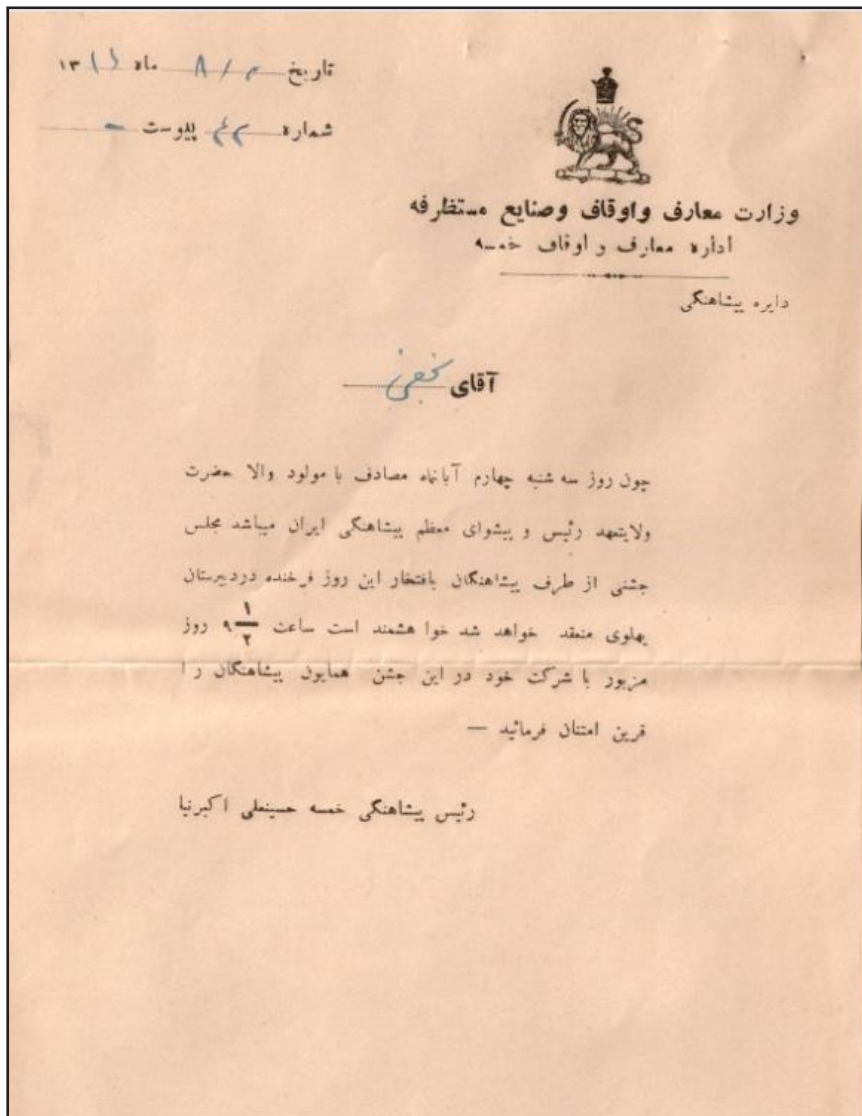 تاریخ ۳ / ۸ ماه ۱۳۱۶
شماره پیوست -
وزارت معارف و اوقاف و صنایع مستظرفه
أداره معارف و أوقاف خمسه
دایره پیشاهنگی
آقای
چون روز سه شنبه چهارم آبانماه مصادف با مولود والا حضرت
ولایتعهد رئیس و پیشوای معظم پیشاهنگی ایران میباشد مجلس
جشنی از طرف پیشاهنگان بافتخار این روز فرخنده دردبیرستان
پهلوی منعقد خواهد شد خوا هشمند است ساعت ۹ ۱/۲ روز
مزبور با شرکت خود در این جشن همایون پیشاهنگان را
قرین امتنان فرمائید —
رئیس پیشاهنگی خمسه حسینعلی اکبرنیا